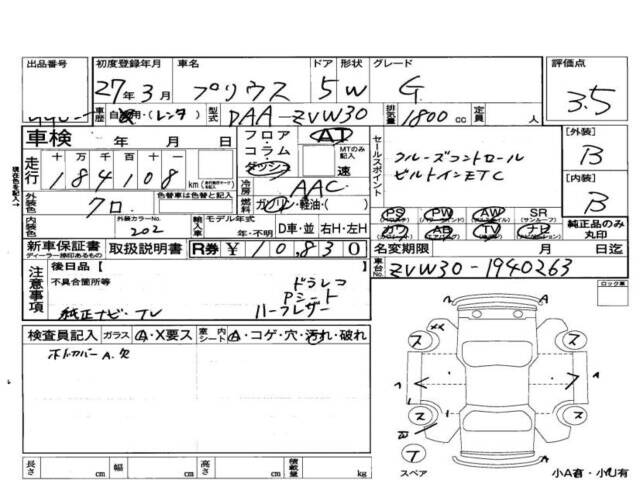 出品番号 初度登録年月 車名 ドア 形状 グレード 評価点
27年3月 プリウス 5 W G 3.5
車歴 自家用・(レンタ) 型式 DAA-ZVW30 排気量 1800 cc 定員 人
車検 年 月 日 フロア・コラム・ダッシュ AT MTのみ記入 速
セールスポイント
クルーズコントロール
ビルトインETC
[外装] B
[内装] B
走行 十 万 千 百 十 一
184108 km
冷房 AAC
外装色 クロ 色替車は色替と記入 ガソリン・軽油・( )
PS PW AW SR
カワ AB TV ナビ 純正品のみ丸印
内装色 外装カラーNo. 202 輸入車 モデル年式 年・不明 D車・並 右H・左H
新車保証書 取扱説明書 R券 ¥10,830 名変期限 月 日迄
ディーラー捺印のあるもの
車台No. ZVW30-1940263
注意事項 後日品[ ]
不具合箇所等 ドラレコ
Pシート
純正ナビ・TV ハーフレザー
ロック車
検査員記入 ガラス A・X要ス 室内シート A・コゲ・穴・汚れ・破れ
ス ス ス ス
スペア
小A有・小U有
長さ cm 幅 cm 高さ cm 積載量 kg
現在色を記入→